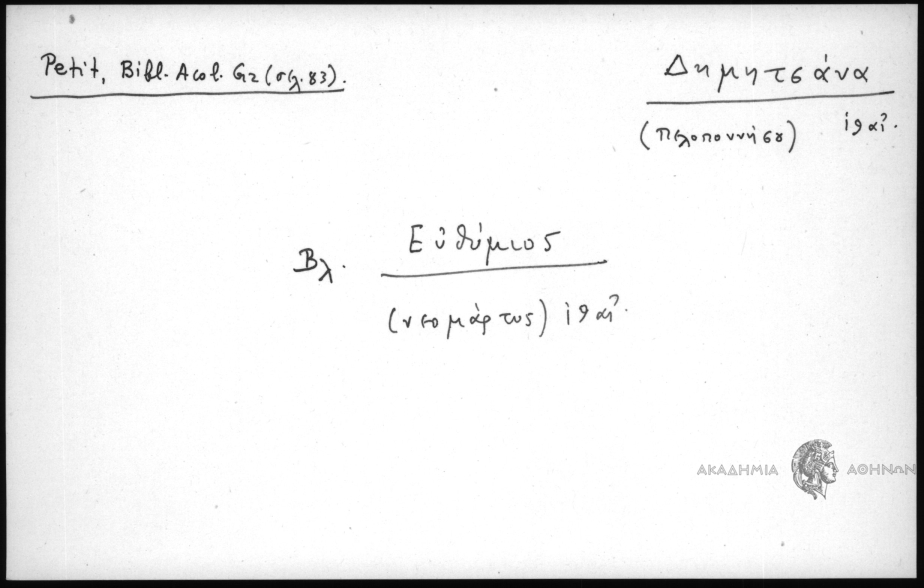 Petit, Bibl. Acol. Gr (σελ. 83).
Δημητσάνα
(Πελοποννήσου) ιθ αἰ.
Βλ. Εὐθύμιος
(νεομάρτυς) ιθ αἰ.
ΑΚΑΔΗΜΙΑ ΑΘΗΝΩΝ